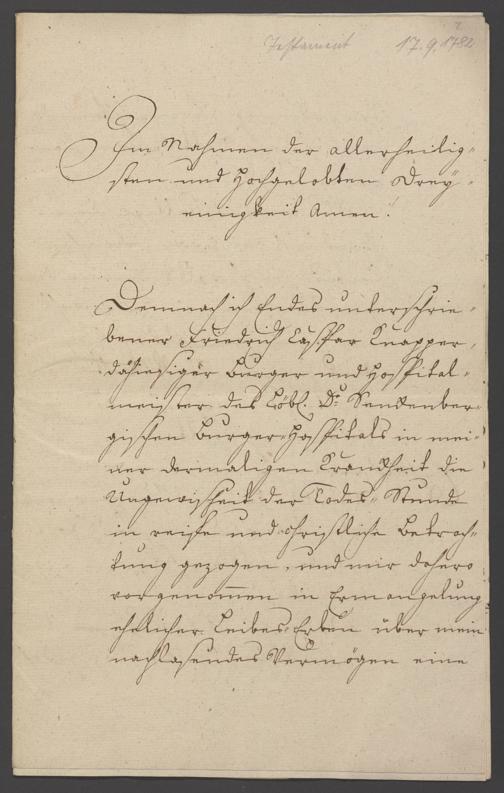 Testament 17.9.1782
Im Nahmen der allerheilig-
sten und Hochgelobten Drey-
einigkeit Amen!
Demnach ich Endes unterschrie-
bener Friedrich Casspar Knapper,
dahiesiger Burger und Hospital-
meister des Löbl. Dr. Senckenber-
gischen Burger-Hospitals in mei-
ner dermaligen Kranckheit die
Ungewisheit der Todes-Stunde
in reife und christliche Betrach-
tung gezogen, und mir dahero
vorgenommen in Ermangelung
ehelicher Leibes-Erben über mein
nachlasendes Vermögen eine